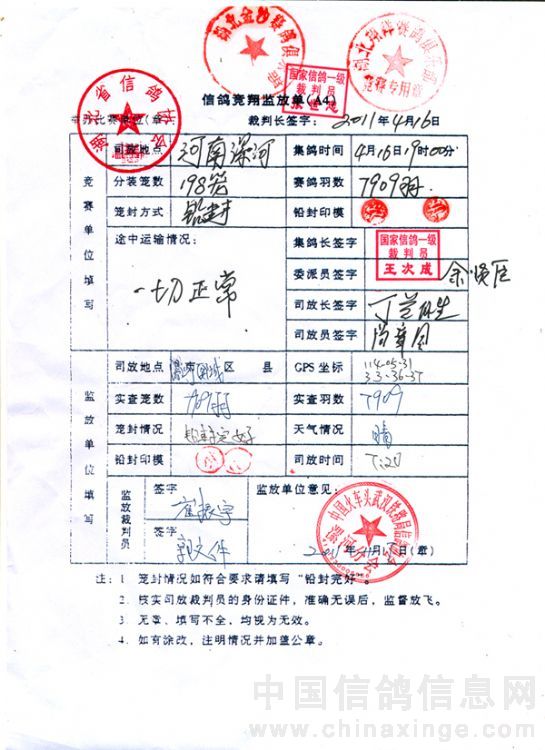 信鸽竞翔监放单(A4)
裁判长签字： 2011年4月16日
国家信鸽一级
裁判员
司放地点 河南漯河 集鸽时间 4月16日19时00分
竞赛单位填写
分装笼数 198笼 赛鸽羽数 7909羽
笼封方式 铅封 铅封印模
途中运输情况： 集鸽长签字
国家信鸽一级
裁判员
王次成
一切正常 委派员签字
司放长签字
司放员签字
监放单位填写
司放地点 区 县 GPS坐标 114-05-31
33-36-37
实查笼数 实查羽数 7909
笼封情况 铅封完好 天气情况 晴
铅封印模 司放时间 7:20
监放裁判员
签字 崔振宇 监放单位意见：
签字 郭文件
中国火车头武汉铁路局信鸽
漯河分会
(章)
注：1. 笼封情况如符合要求请填写“铅封完好”。
2. 核实司放裁判员的身份证件，准确无误后，监督放飞。
3. 无章、填写不全，均视为无效。
4. 如有涂改，注明情况并加盖公章。
中国信鸽信息网
www.chinaxinge.com